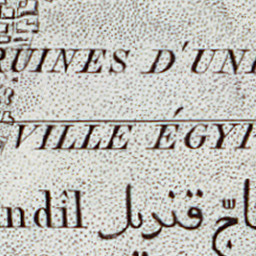 RUINES D'UNE
VILLE ÉGYP
ndîl قنديل